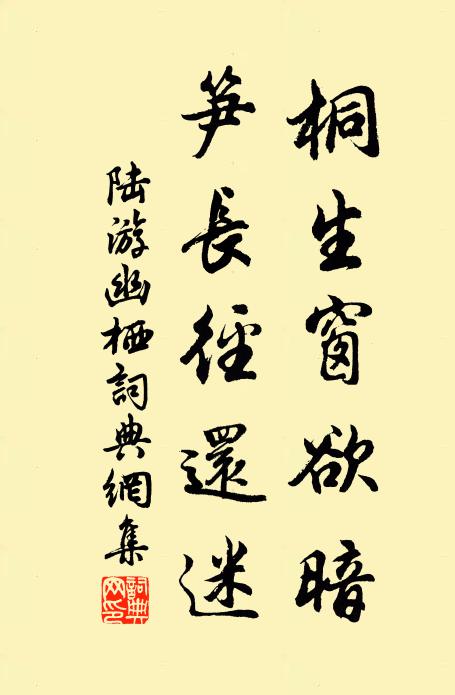 桐生窗欲暗
笋長徑還迷
陸游幽栖詞典網集
詞典網印